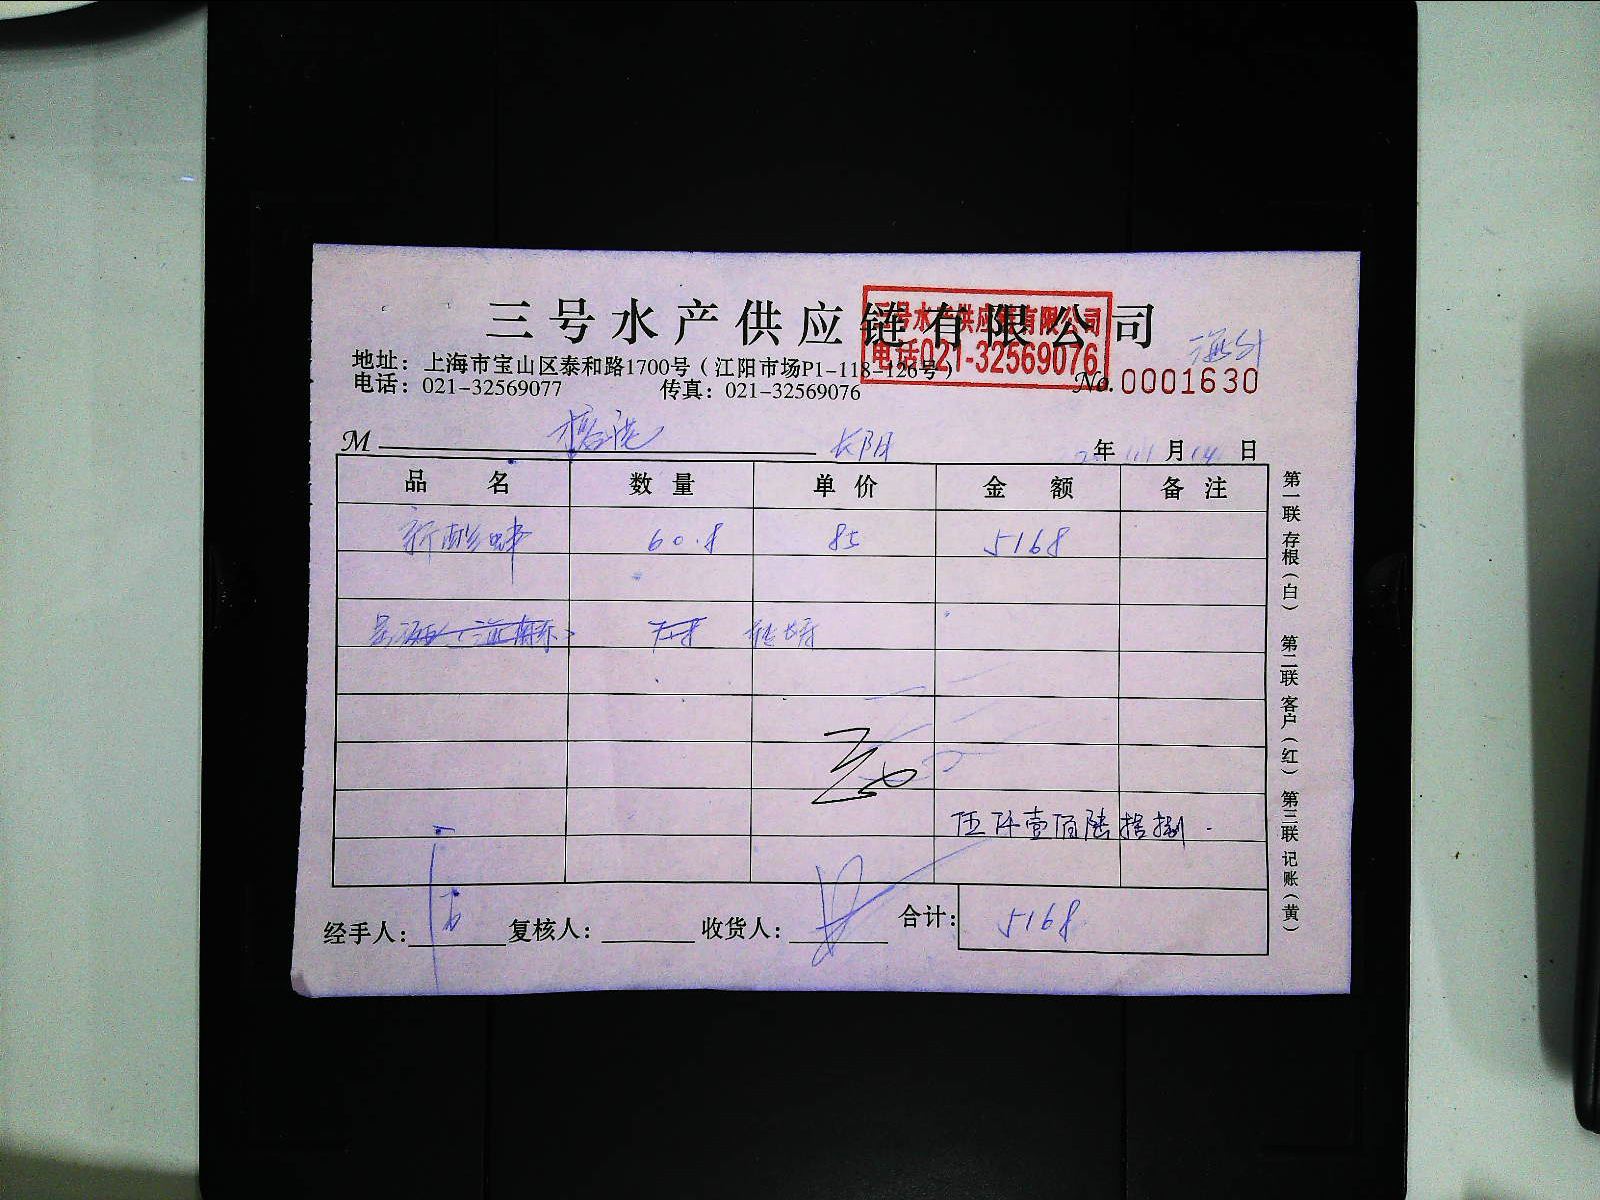 三号水产供应链有限公司
三号水产供应链有限公司
电话021-32569076
地址：上海市宝山区泰和路1700号（江阳市场P1-118-126号）
电话：021-32569077 传真：021-32569076
No.0001630
M 长阳 年 11月14日
品名 数量 单价 金额 备注
60.8 85 5168
伍仟壹佰陆拾捌.
经手人： 复核人： 收货人： 合计：5168
第一联 存根（白） 第二联 客户（红） 第三联 记账（黄）